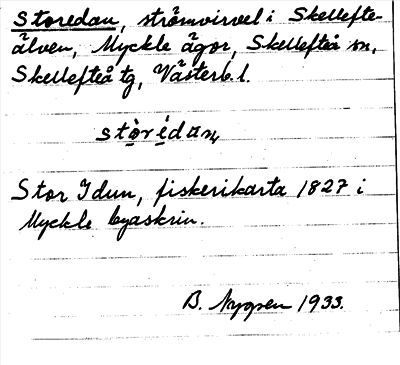 Storedan, strömvirvel i Skellefte-
älven, Myckle ägor, Skellefteå sn,
Skellefteå tg, Västerb. l.
stòrédan,
Stor Idun, fiskerikarta 1827 i
Myckle byaskrin.
B. 1933.